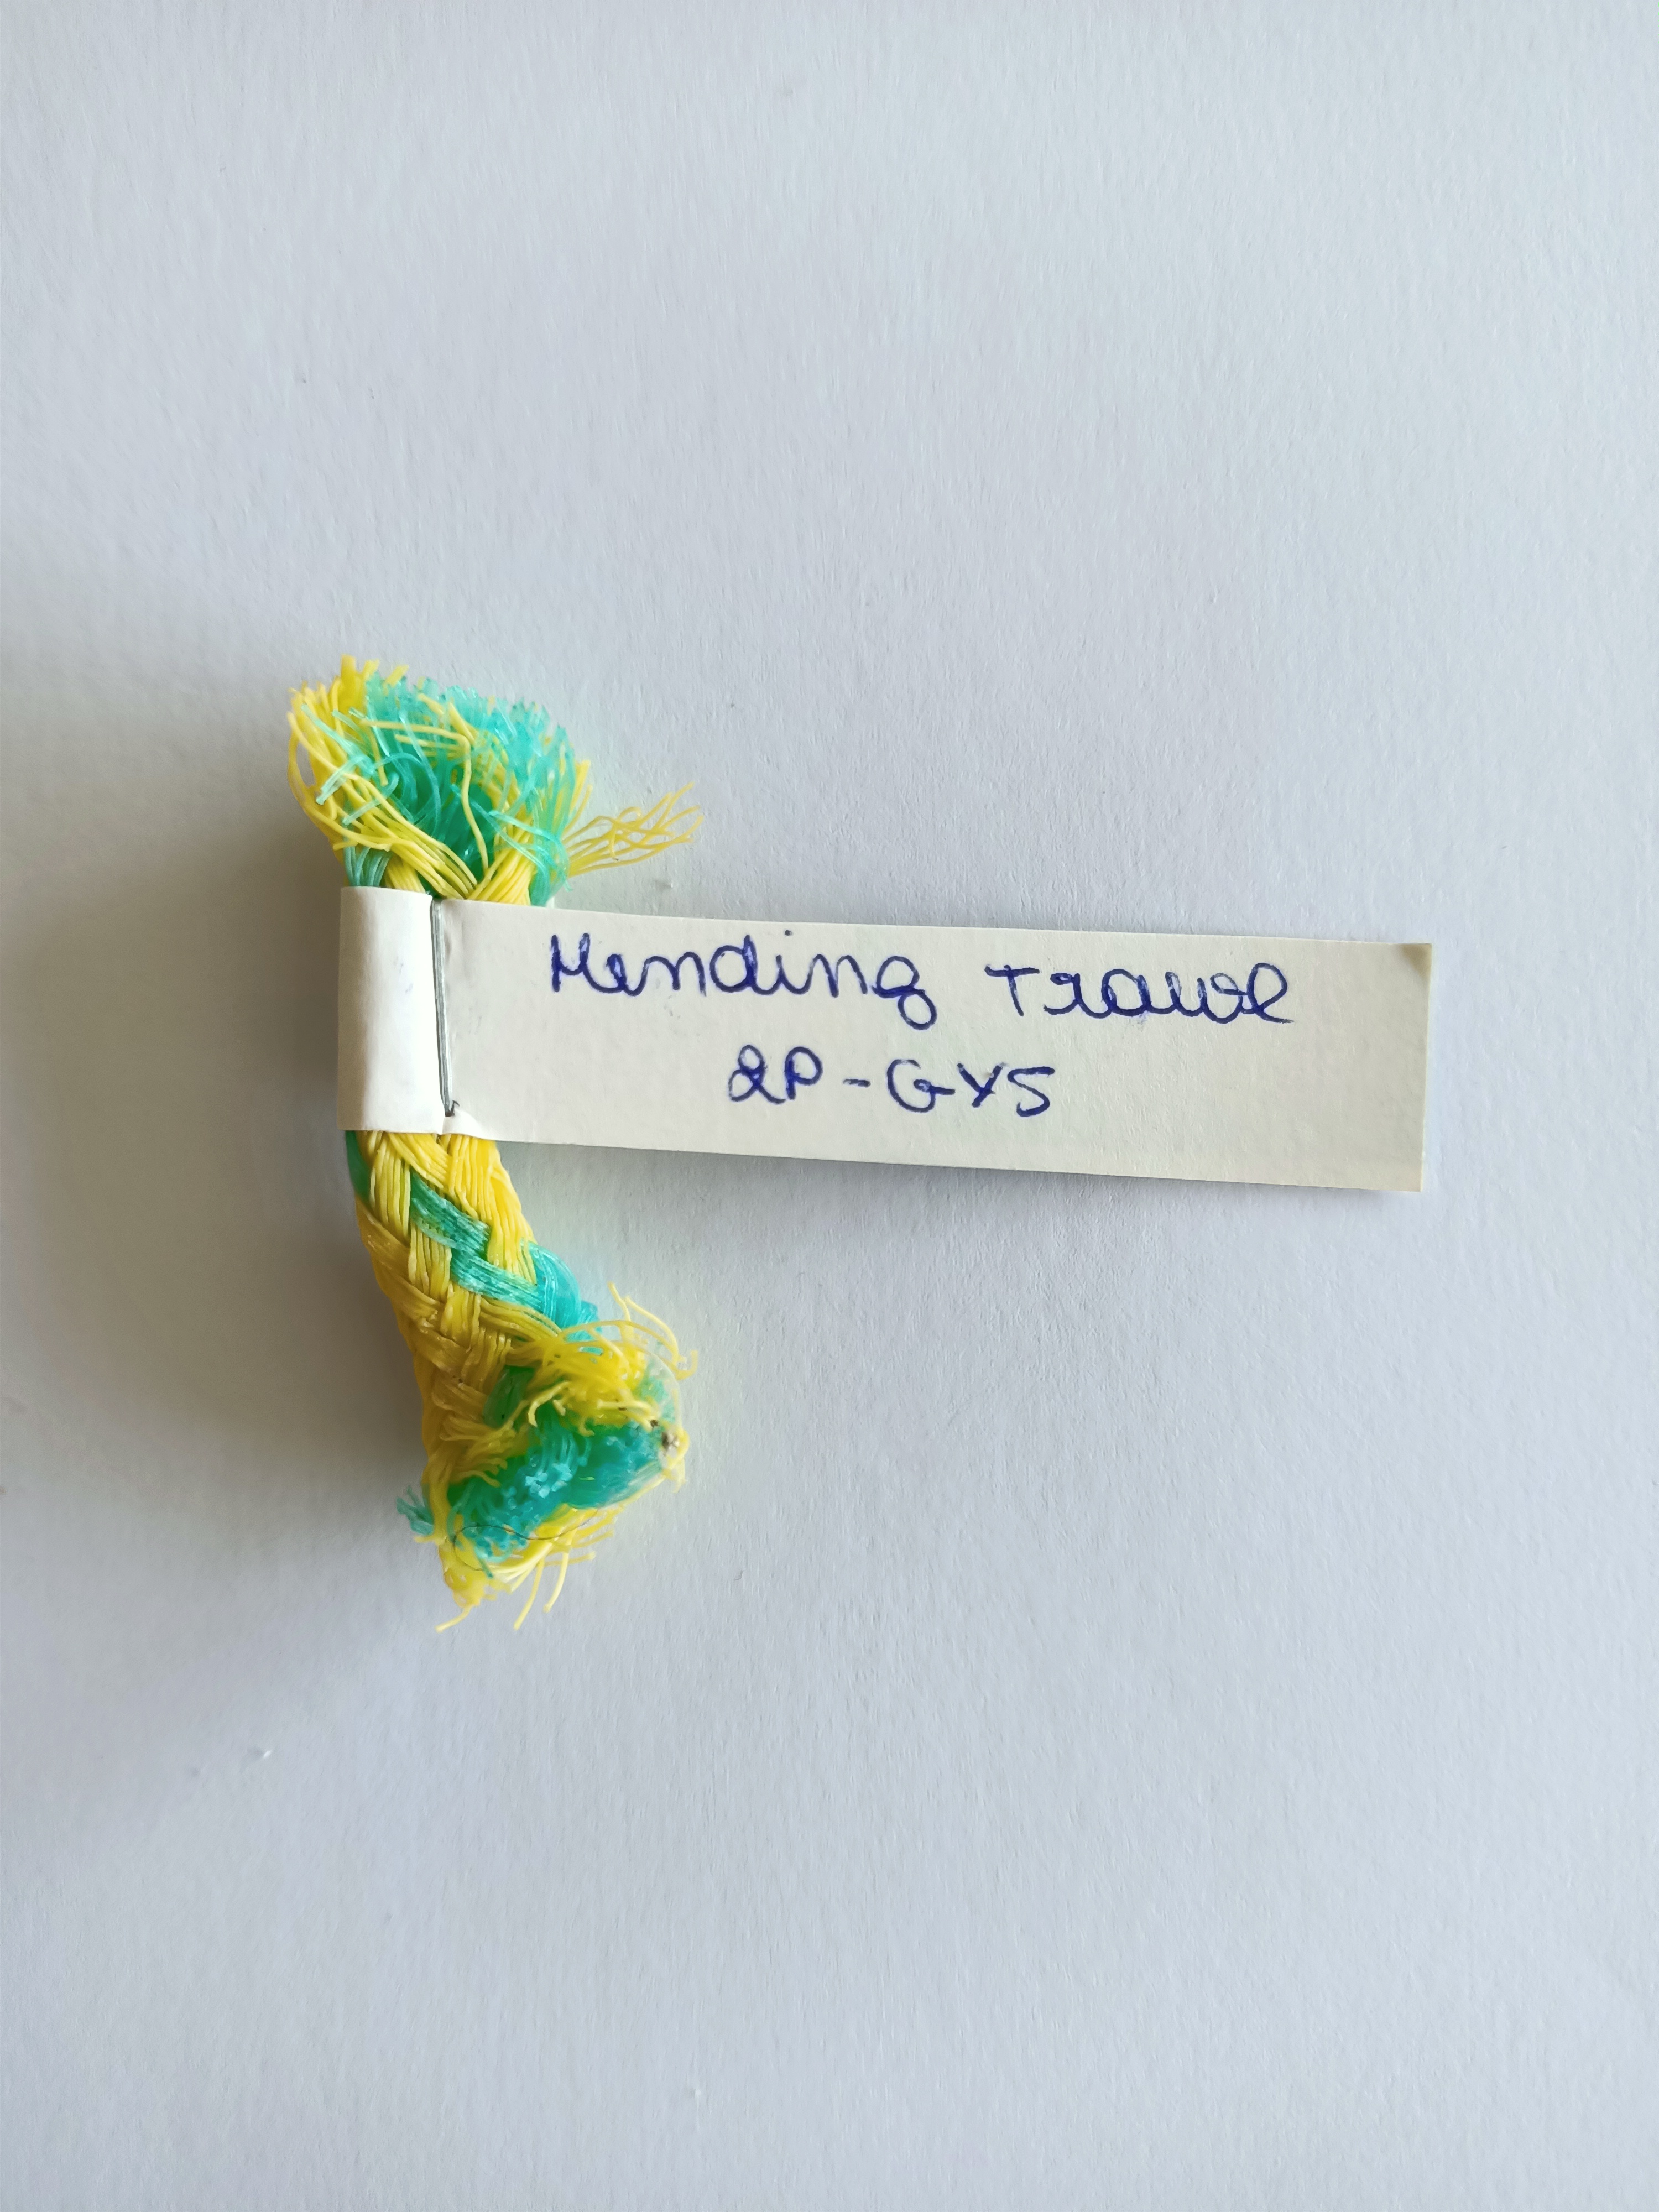 Mending Trawl
2P-GY5